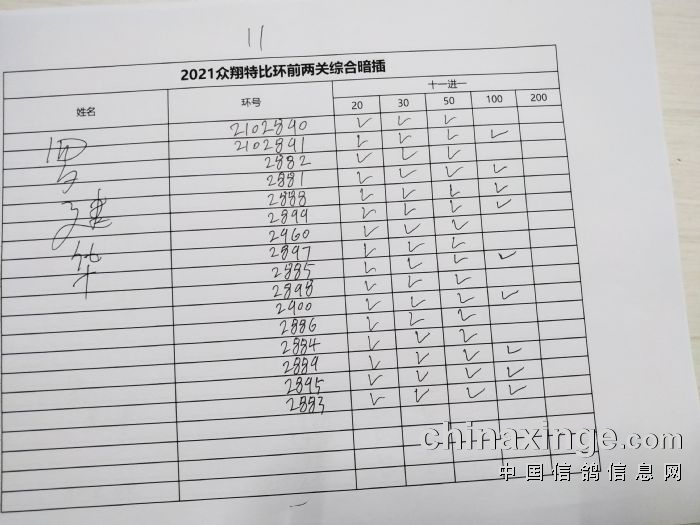 11
2021众翔特比环前两关综合暗插
姓名 环号 十一进一
20 30 50 100 200
罗建华
2102890 ✓ ✓ ✓
2102891 ✓ ✓ ✓ ✓
2882 ✓ ✓ ✓
2881 ✓ ✓ ✓ ✓
2888 ✓ ✓ ✓ ✓
2899 ✓ ✓ ✓ ✓
2960 ✓ ✓ ✓
2897 ✓ ✓ ✓
2885 ✓ ✓ ✓ ✓
2898 ✓ ✓ ✓
2900 ✓ ✓ ✓ ✓
2886 ✓ ✓ ✓
2884 ✓ ✓ ✓
2889 ✓ ✓ ✓ ✓
2895 ✓ ✓ ✓ ✓
2883 ✓ ✓ ✓ ✓
chinaxinge.com
中国信鸽信息网